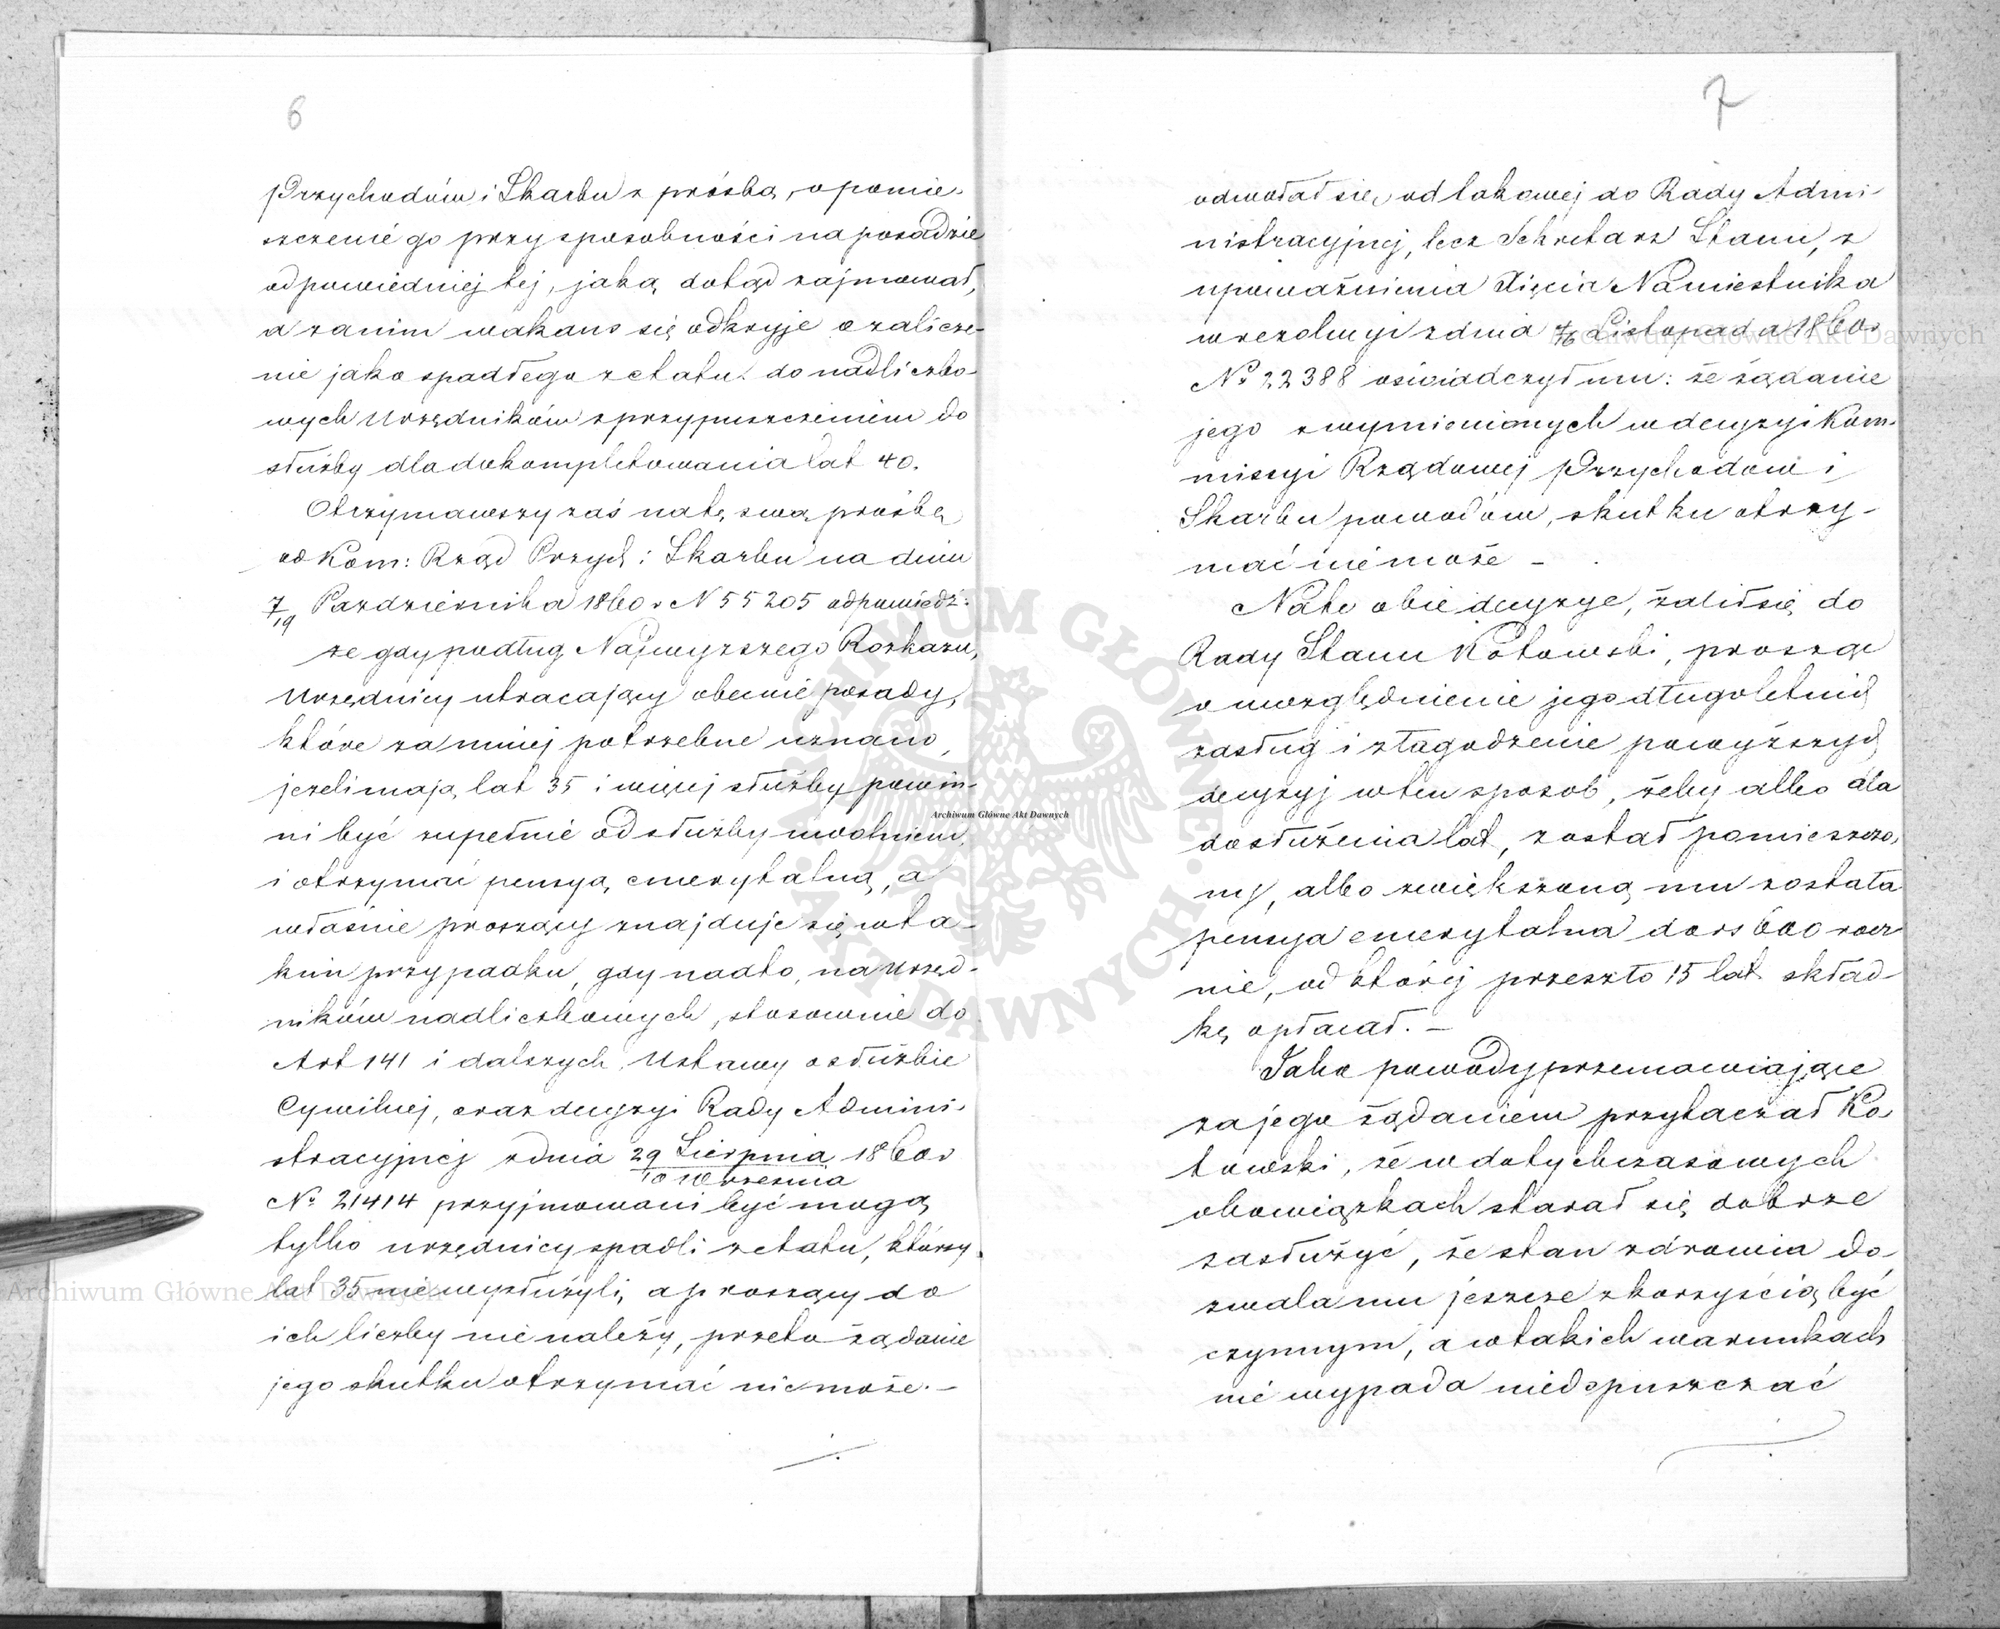 6
Przychodów i Skarbu z prośbą, o pomie-
szczenie go przy sposobności na posadzie
odpowiedniej tej, jaką dotąd zajmował,
a zanim wakans się odkryje o zalicze-
nie jako spadłego z etatu do nadliczbo-
wych Urzędników z przypuszczeniem do
służby dla dokompletowania lat 40.
Otrzymawszy zaś na tę swą prośbę
od Kom: Rząd Przych i Skarbu na dniu
7/19 Pazdziernika 1860 r N 55205 odpowiedź:
ze gdy podług Najwyzszego Rozkazu,
Urzędnicy utracający obecnie posady,
które za mniej potrzebne uznano,
jezeli mają lat 35 i więcej służby powin-
ni być zupełnie od służby uwolnieni,
i otrzymać pensyą emerytalną, a
właśnie proszący znajduje się w ta-
kim przypadku, gdy nadto, na Urzęd-
ników nadliczbowych, stosownie do
Art 141 i dalszych Ustawy o służbie
Cywilnej, oraz decyzyi Rady Admini-
stracyjnej z dnia 29 Sierpnia 1860 r
10 Września
Nº 21414 przyjmowani być mogą
tylko urzędnicy spadli z etatu, którzy
lat 35 nie wysłużyli, a proszący do
ich liczby nie należy, przeto żądanie
jego skutku otrzymać nie może. —
7
odwołał się, od takowej do Rady Admi-
nistracyjnej, lecz Sekretarz Stanu, z
upoważnienia Xięcia Namiestnika
w rezolucyi z dnia 4/16 Listopada 1860 r
Nº 22388 oświadczył mu: że żądanie
jego z wymienionych w decyzyi Kom-
missyi Rządowej Przychodów i
Skarbu powodów, skutku otrzy-
mać nie może —
Na te obie decyzye, żalił się do
Rady Stanu Kotowski, prosząc
o uwzględnienie jego długoletnich
zasług i złagodzenie powyższych
decyzyj w ten sposób, żeby albo dla
dosłużenia lat, został pomieszczo-
ny, albo zwiększoną mu została
pensya emerytalna do rs 600 rocz
nie, od której przeszło 15 lat skład-
kę opłacał. —
Jako powody przemawiające
za jego żądaniem przytaczał Ko-
towski, że w dotychczasowych
obowiązkach starał się dobrze
zasłużyć, że stan zdrowia do-
zwala mu jeszcze z korzyścią być
czynnym, a w takich warunkach
nie wypada niedopuszczać
Archiwum Główne Akt Dawnych
Archiwum Główne Akt Dawnych
Archiwum Główne Akt Dawnych
ARCHIWUM GŁÓWNE AKT DAWNYCH